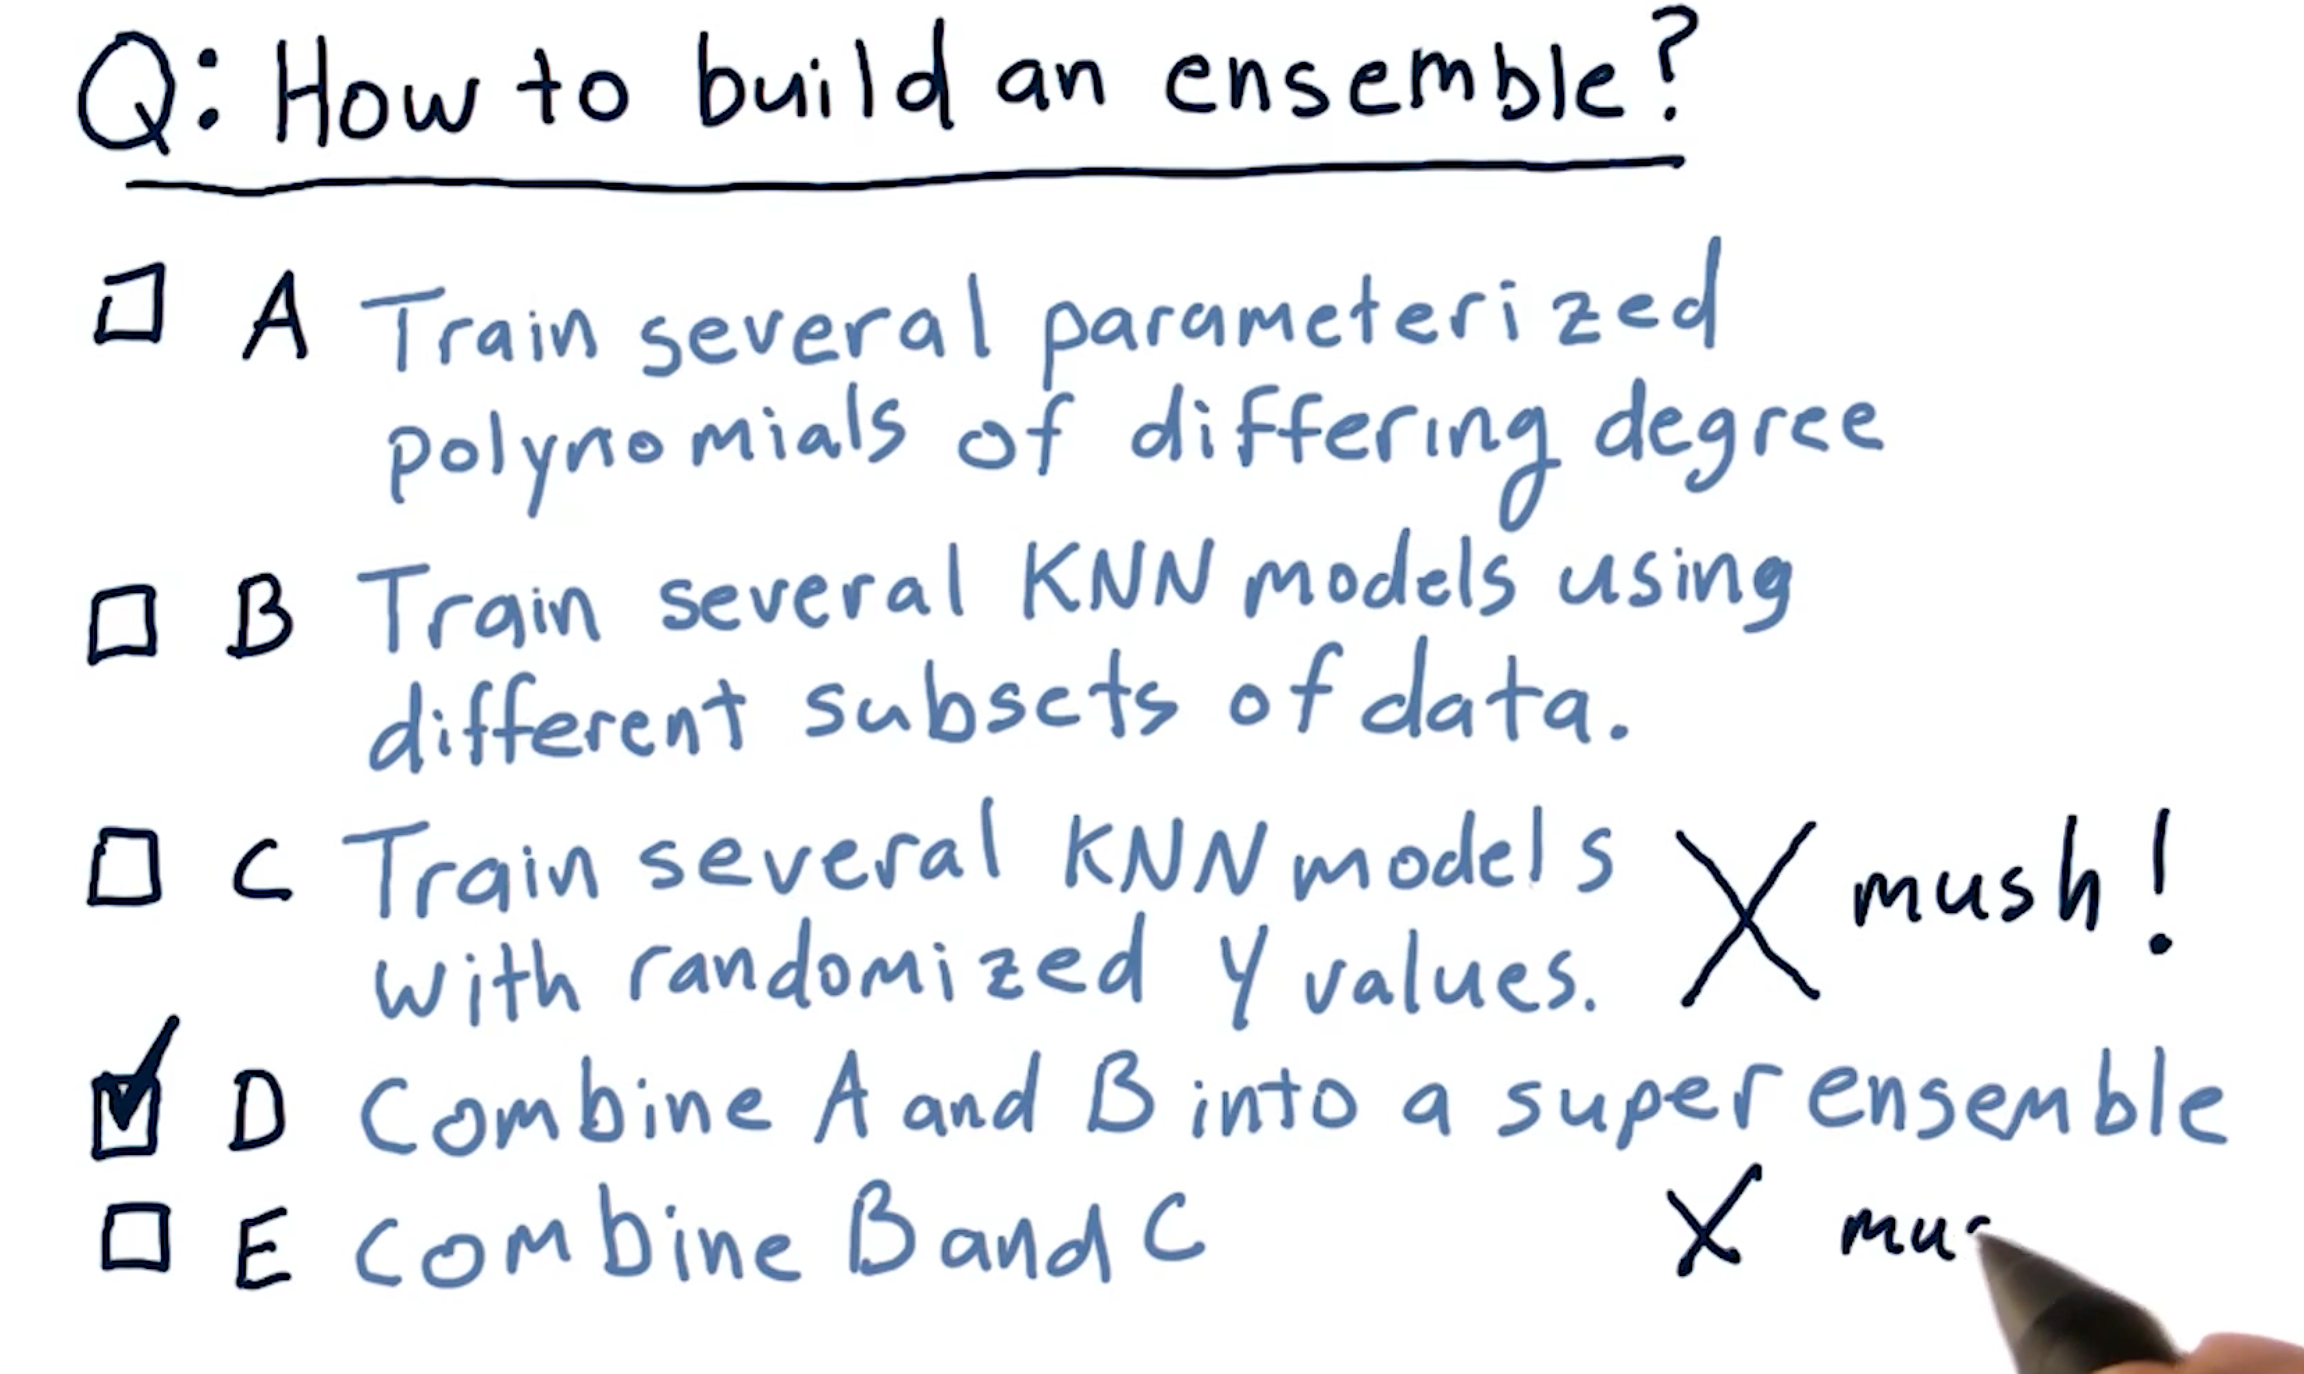 Q: How to build an ensemble?
A Train several parameterized
polynomials of differing degree
B Train several KNN models using
different subsets of data.
C Train several KNN models
with randomized Y values.
X mush!
D Combine A and B into a super ensemble
E Combine B and C
X mus